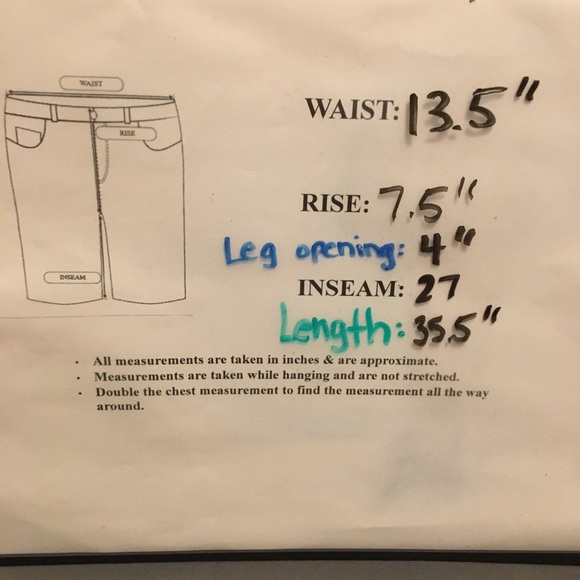 WAIST
RISE
INSEAM
WAIST: 13.5"
RISE: 7.5"
Leg opening: 4"
INSEAM: 27
Length: 35.5"
· All measurements are taken in inches & are approximate.
· Measurements are taken while hanging and are not stretched.
· Double the chest measurement to find the measurement all the way
around.